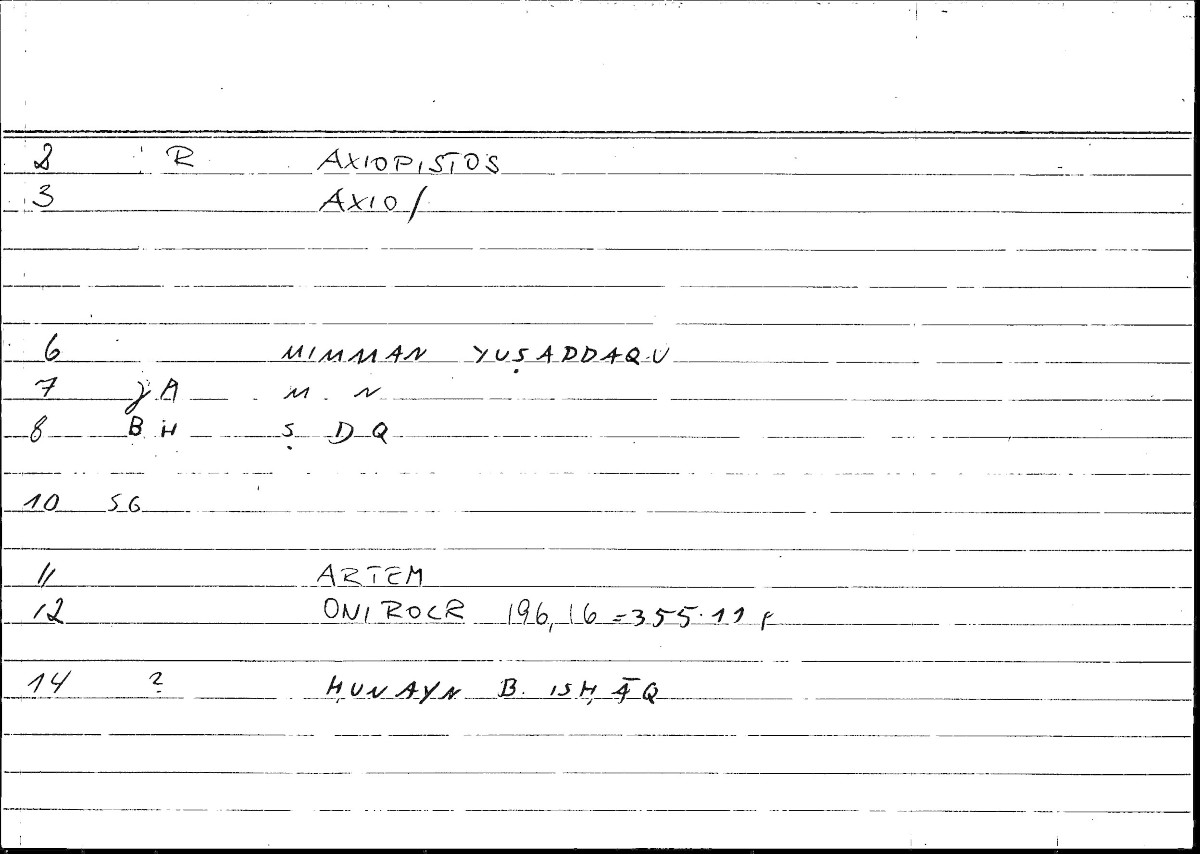 2 R AXIOPISTOS
3 AXIO/
6 MIMMAN YUṢADDAQU
7 JA M N
8 BH Ṣ DQ
10 SG
11 ARTEM
12 ONIROCR 196,16 = 355.11
14 2 ḤUNAYN B. ISḤĀQ